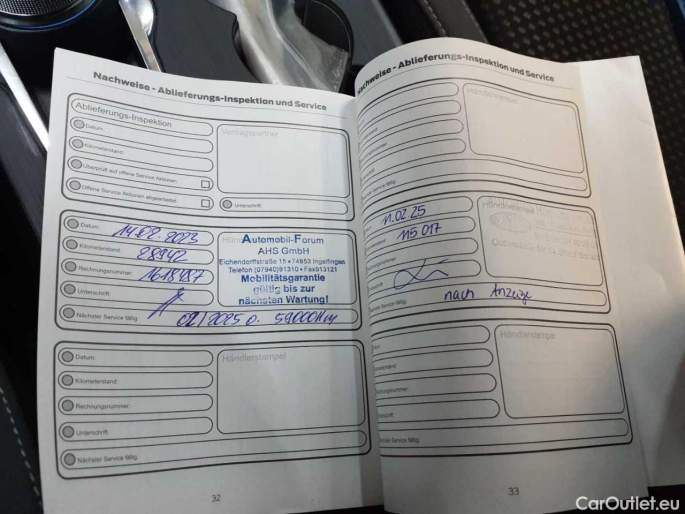 Nachweise - Ablieferungs-Inspektion und Service
Ablieferungs-Inspektion
Datum:
Kilometerstand:
Überprüft auf offene Service Aktionen:
Offene Service Aktionen abgearbeitet:
Vertragspartner
Unterschrift:
Datum: 14.02.2023
Kilometerstand: 28942
Rechnungsnummer:
Unterschrift:
Nächster Service fällig: 02/2025 o. 59000Km
Automobil-Forum
AHS GmbH
Eichendorffstraße 15 • 74653 Ingelfingen
Telefon (07940) 91310 • Fax 913121
Mobilitätsgarantie
gültig bis zur
nächsten Wartung!
Datum:
Kilometerstand:
Rechnungsnummer:
Unterschrift:
Nächster Service fällig:
Händlerstempel
32
Nachweise - Ablieferungs-Inspektion und Service
Händlerstempel
Service fällig:
11.02.25
115 017
Händlerstempel
Service fällig: nach Anzeige
Händlerstempel
Nächster Service fällig:
33
CarOutlet.eu